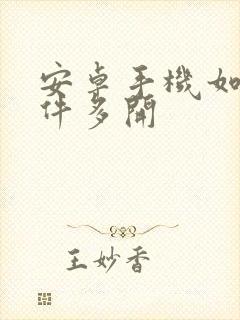 安卓手機如
件多開
王妙香